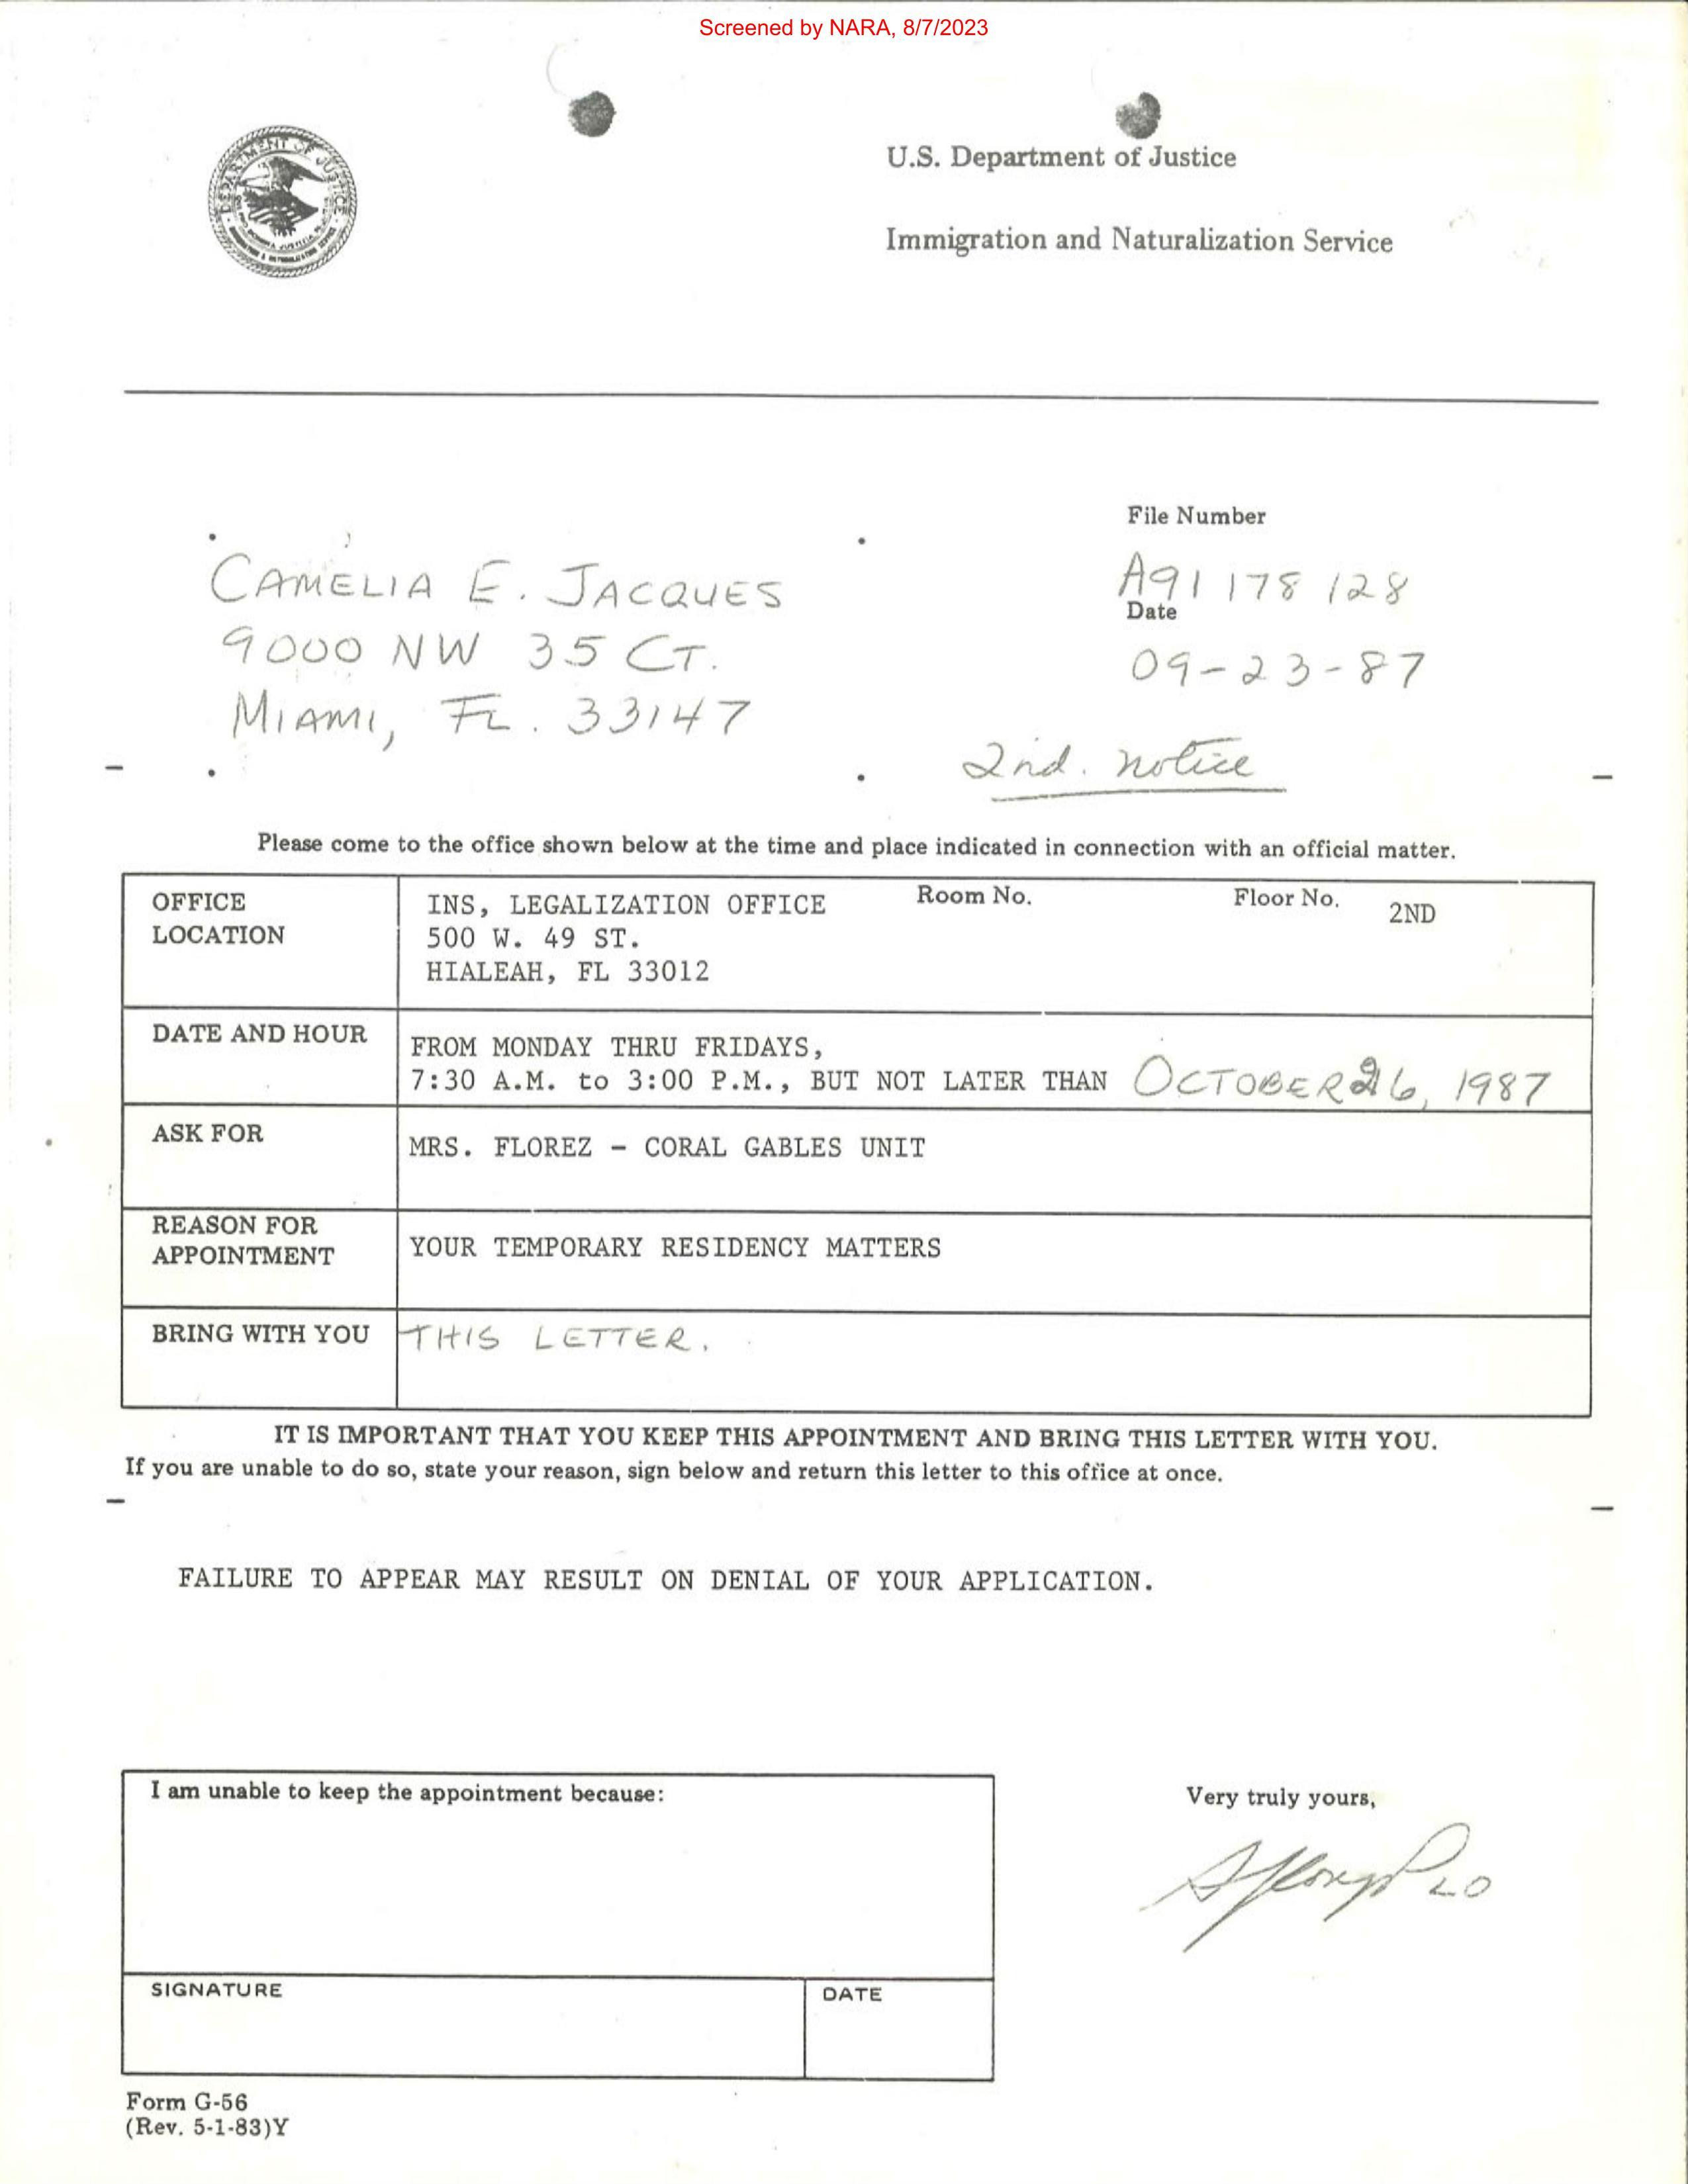 Screened by NARA, 8/7/2023
DEPARTMENT OF JUSTICE
U.S. Department of Justice
Immigration and Naturalization Service
File Number
CAMELIA E. JACQUES
A91 178 128
Date
9000 NW 35 CT.
09-23-87
MIAMI, FL. 33147
2nd. notice
Please come to the office shown below at the time and place indicated in connection with an official matter.
OFFICE LOCATION
INS, LEGALIZATION OFFICE
500 W. 49 ST.
HIALEAH, FL 33012
Room No.
Floor No. 2ND
DATE AND HOUR
FROM MONDAY THRU FRIDAYS,
7:30 A.M. to 3:00 P.M., BUT NOT LATER THAN OCTOBER 26, 1987
ASK FOR
MRS. FLOREZ - CORAL GABLES UNIT
REASON FOR
APPOINTMENT
YOUR TEMPORARY RESIDENCY MATTERS
BRING WITH YOU
THIS LETTER.
IT IS IMPORTANT THAT YOU KEEP THIS APPOINTMENT AND BRING THIS LETTER WITH YOU.
If you are unable to do so, state your reason, sign below and return this letter to this office at once.
FAILURE TO APPEAR MAY RESULT ON DENIAL OF YOUR APPLICATION.
I am unable to keep the appointment because:
Very truly yours,
SIGNATURE
DATE
Form G-56
(Rev. 5-1-83)Y